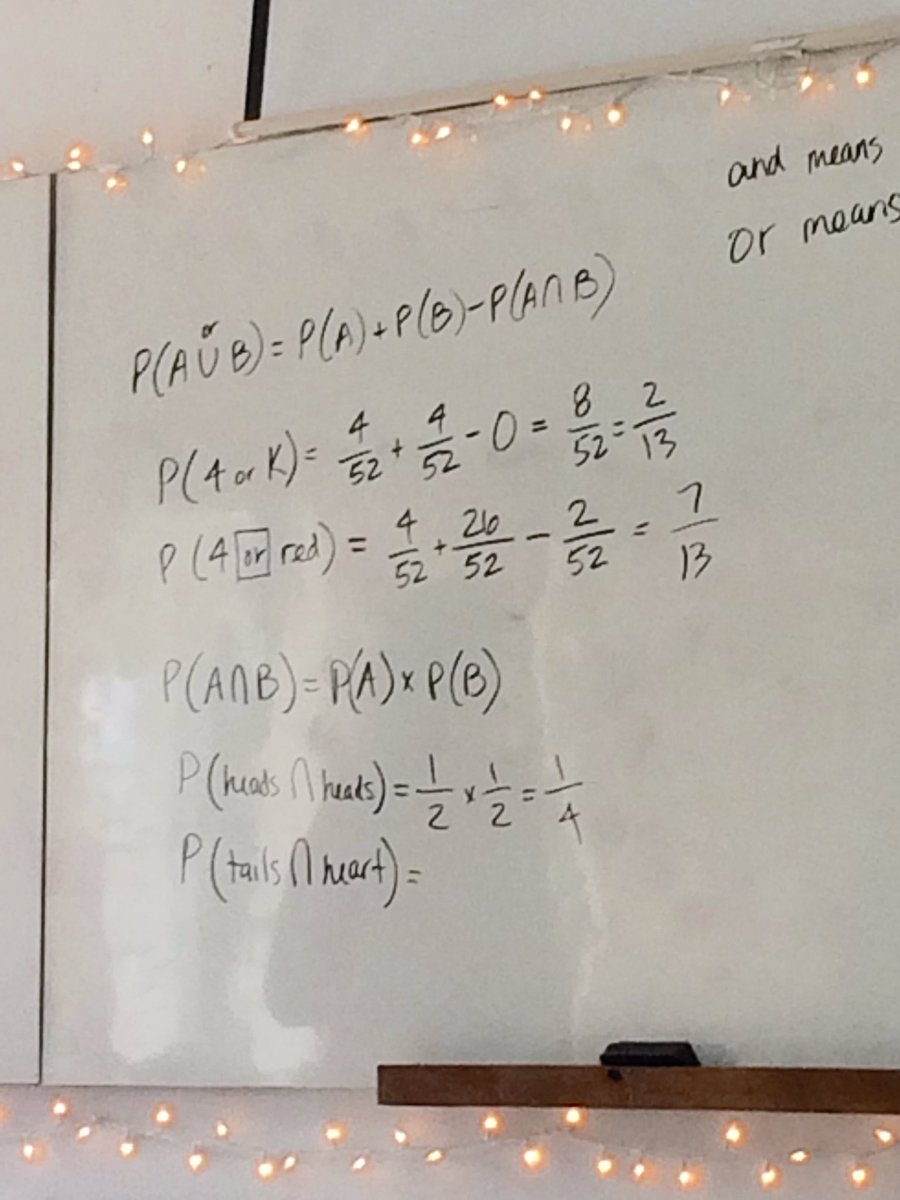 and means
or means
P(A ∪ B) = P(A) + P(B) - P(A ∩ B)
or
P(4 or K) = 4/52 + 4/52 - 0 = 8/52 = 2/13
P(4 or red) = 4/52 + 26/52 - 2/52 = 7/13
P(A ∩ B) = P(A) × P(B)
P(heads ∩ heads) = 1/2 × 1/2 = 1/4
P(tails ∩ heart) =